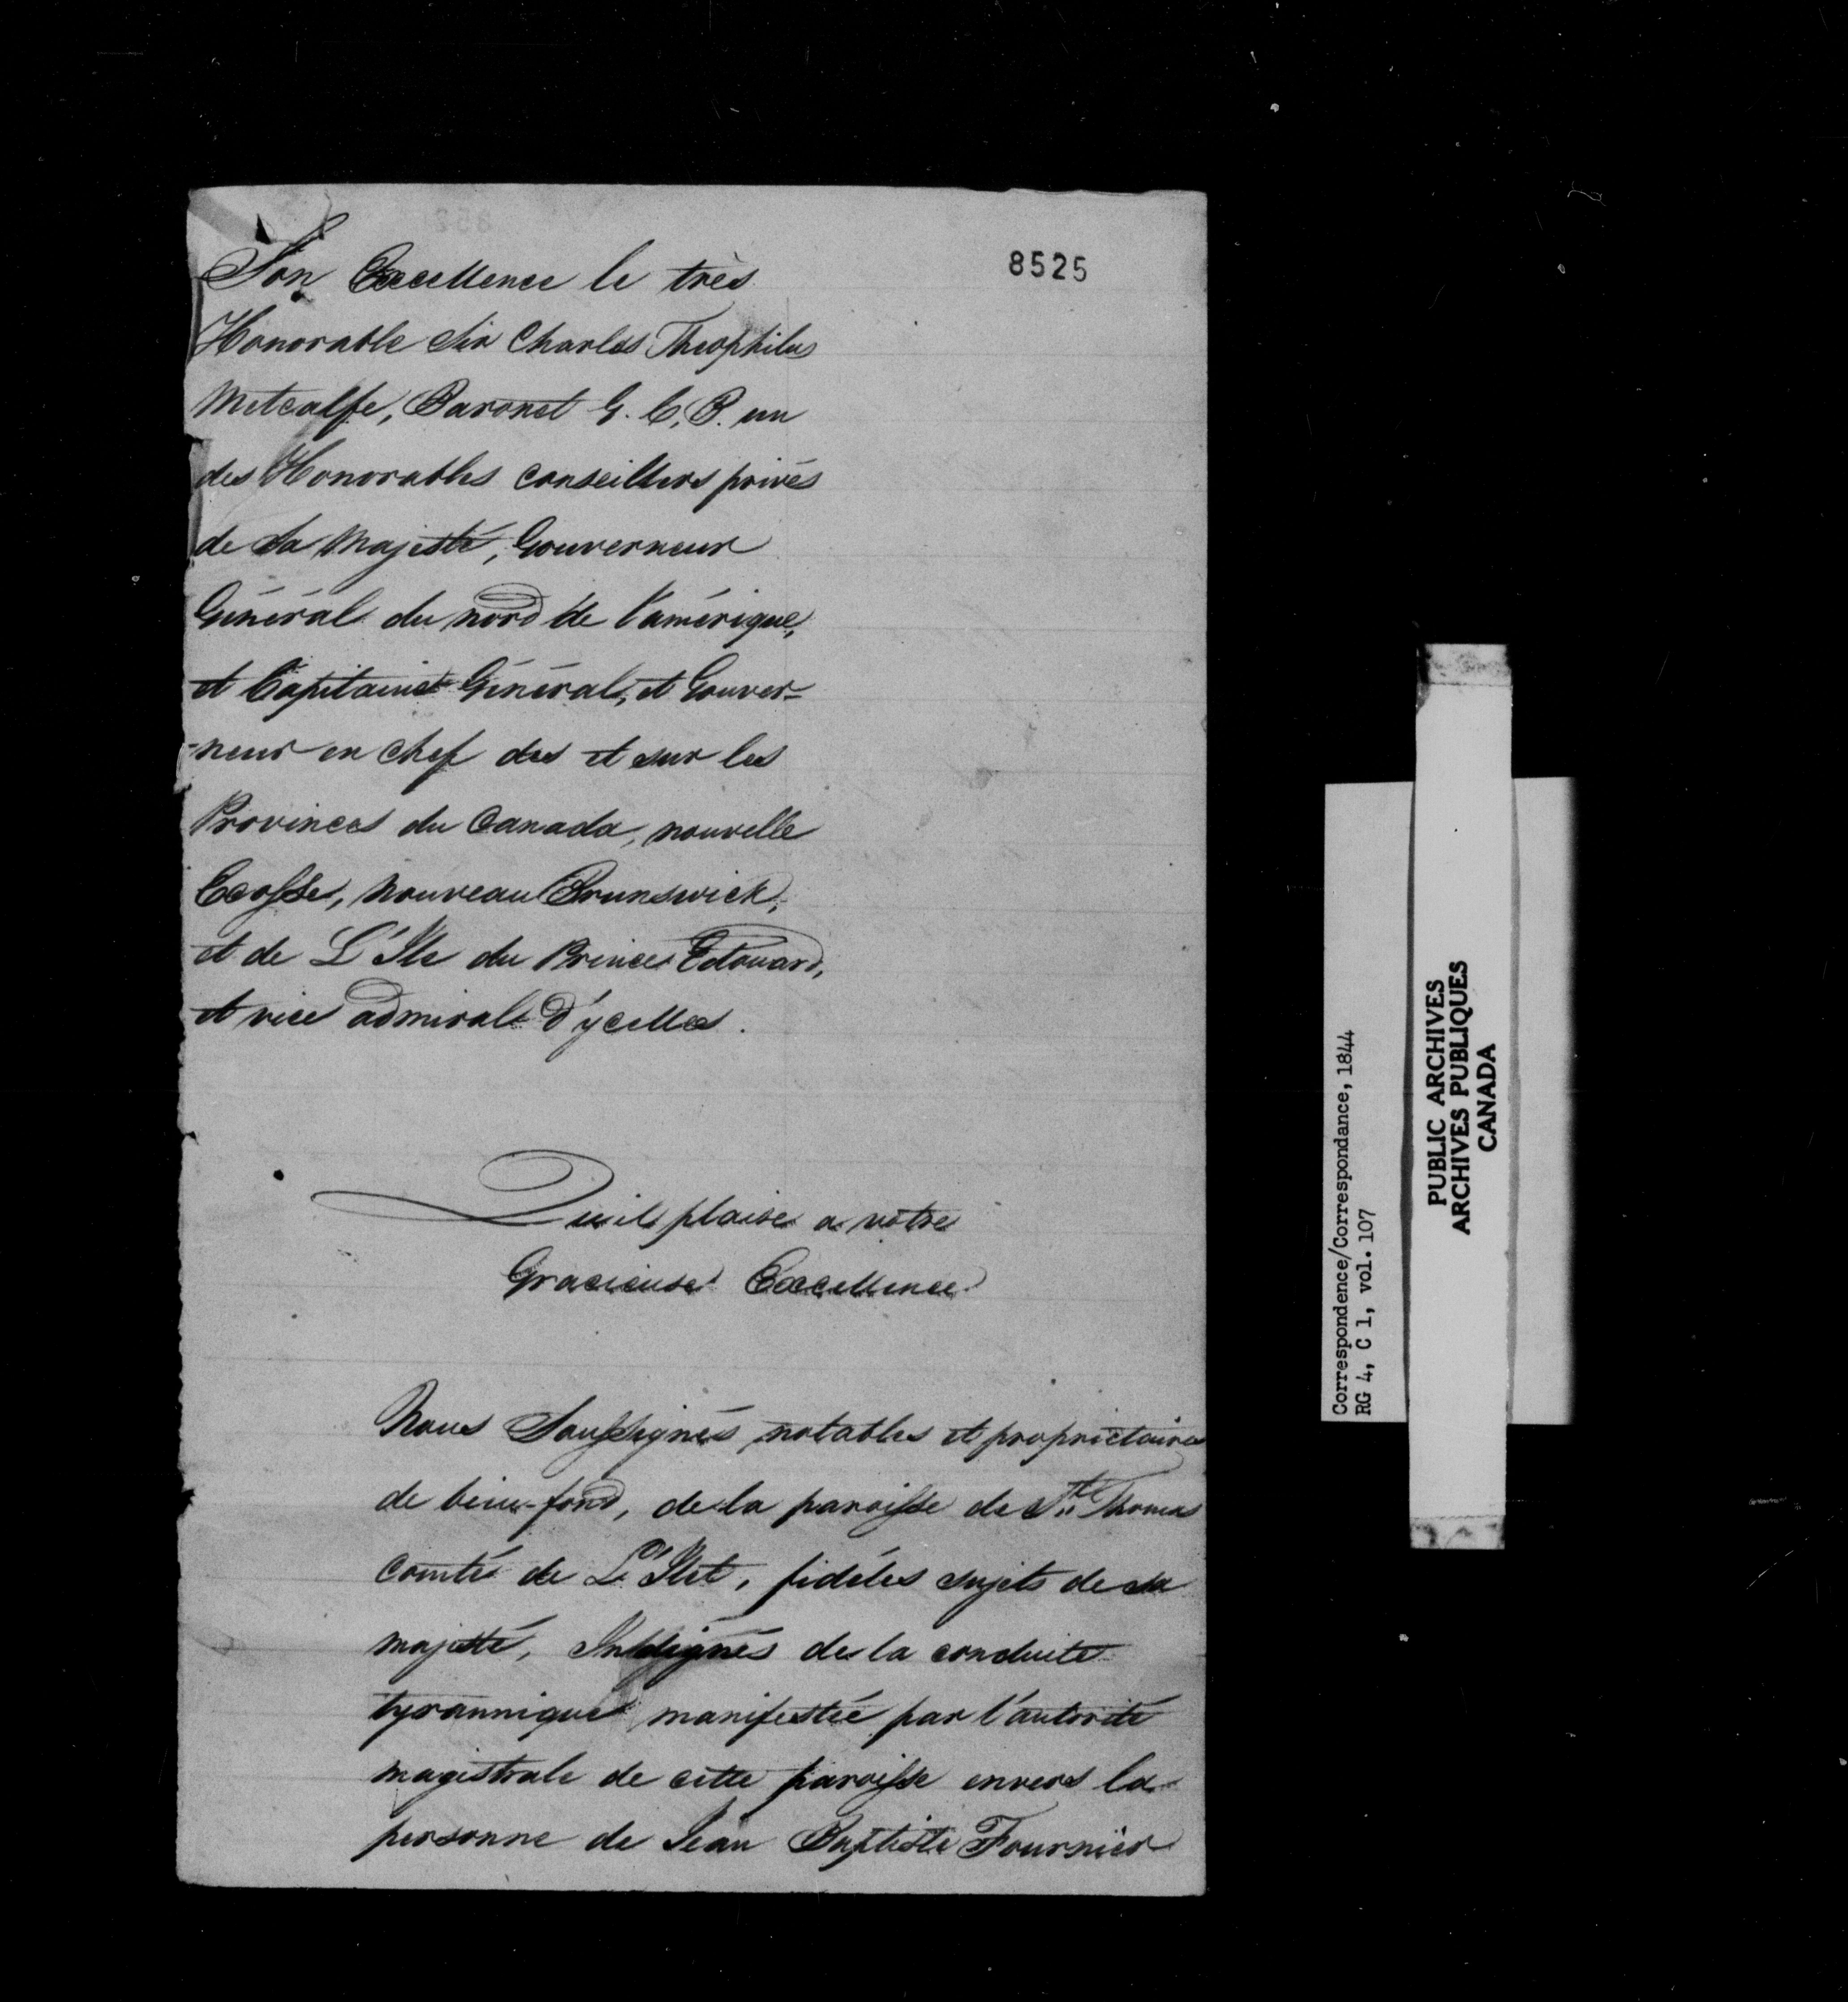 8525
Son Excellence le très
Honorable Sir Charles Theophilus
Metcalfe, Baronet G. C. B. un
des Honorables conseillers privés
de Sa Majesté, Gouverneur
Général du nord de l'amérique,
et Capitaine Général, et Gouver=
=neur en chef des et sur les
Provinces du Canada, nouvelle
Ecosse, Nouveau Brunswick,
et de L'Ile du Prince Edouard,
et vice admiral d'ycelles.
Quil plaise a votre
Gracieuse Excellence
Nous Soussignés notables et proprietaires
de bien-fond, de la paroisse de St. Thomas
comté de L'Ilet, fidéles sujets de sa
majesté, Indignés de la conduite
tyrannique manifestée par l'autorité
magistrale de cette paroisse envers la
personne de Jean Baptiste Fournier
Correspondence/Correspondance, 1844
RG 4, C 1, vol. 107
PUBLIC ARCHIVES
ARCHIVES PUBLIQUES
CANADA